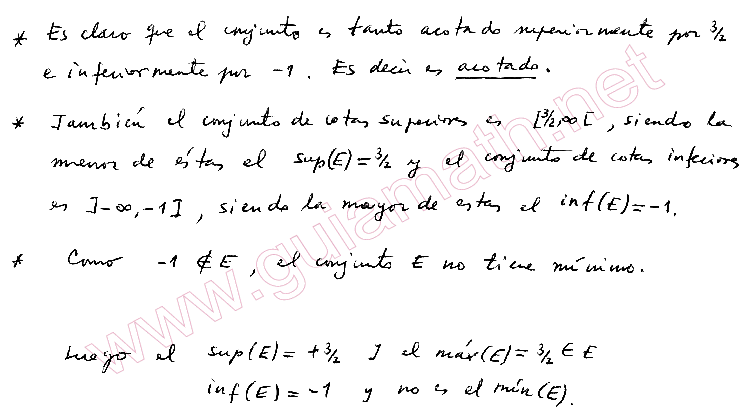 * Es claro que el conjunto es tanto acotado superiormente por 3/2
e inferiormente por -1. Es decir es acotado.
* También el conjunto de cotas superiores es [3/2,∞[, siendo la
menor de éstas el sup(E)=3/2 y el conjunto de cotas inferiores
es ]-∞,-1], siendo la mayor de estas el inf(E)=-1.
* Como -1 ∉ E, el conjunto E no tiene mínimo.
Luego el sup(E)=+3/2 y el máx(E)=3/2 ∈ E
inf(E)=-1 y no es el mín(E).
www.guiamath.net